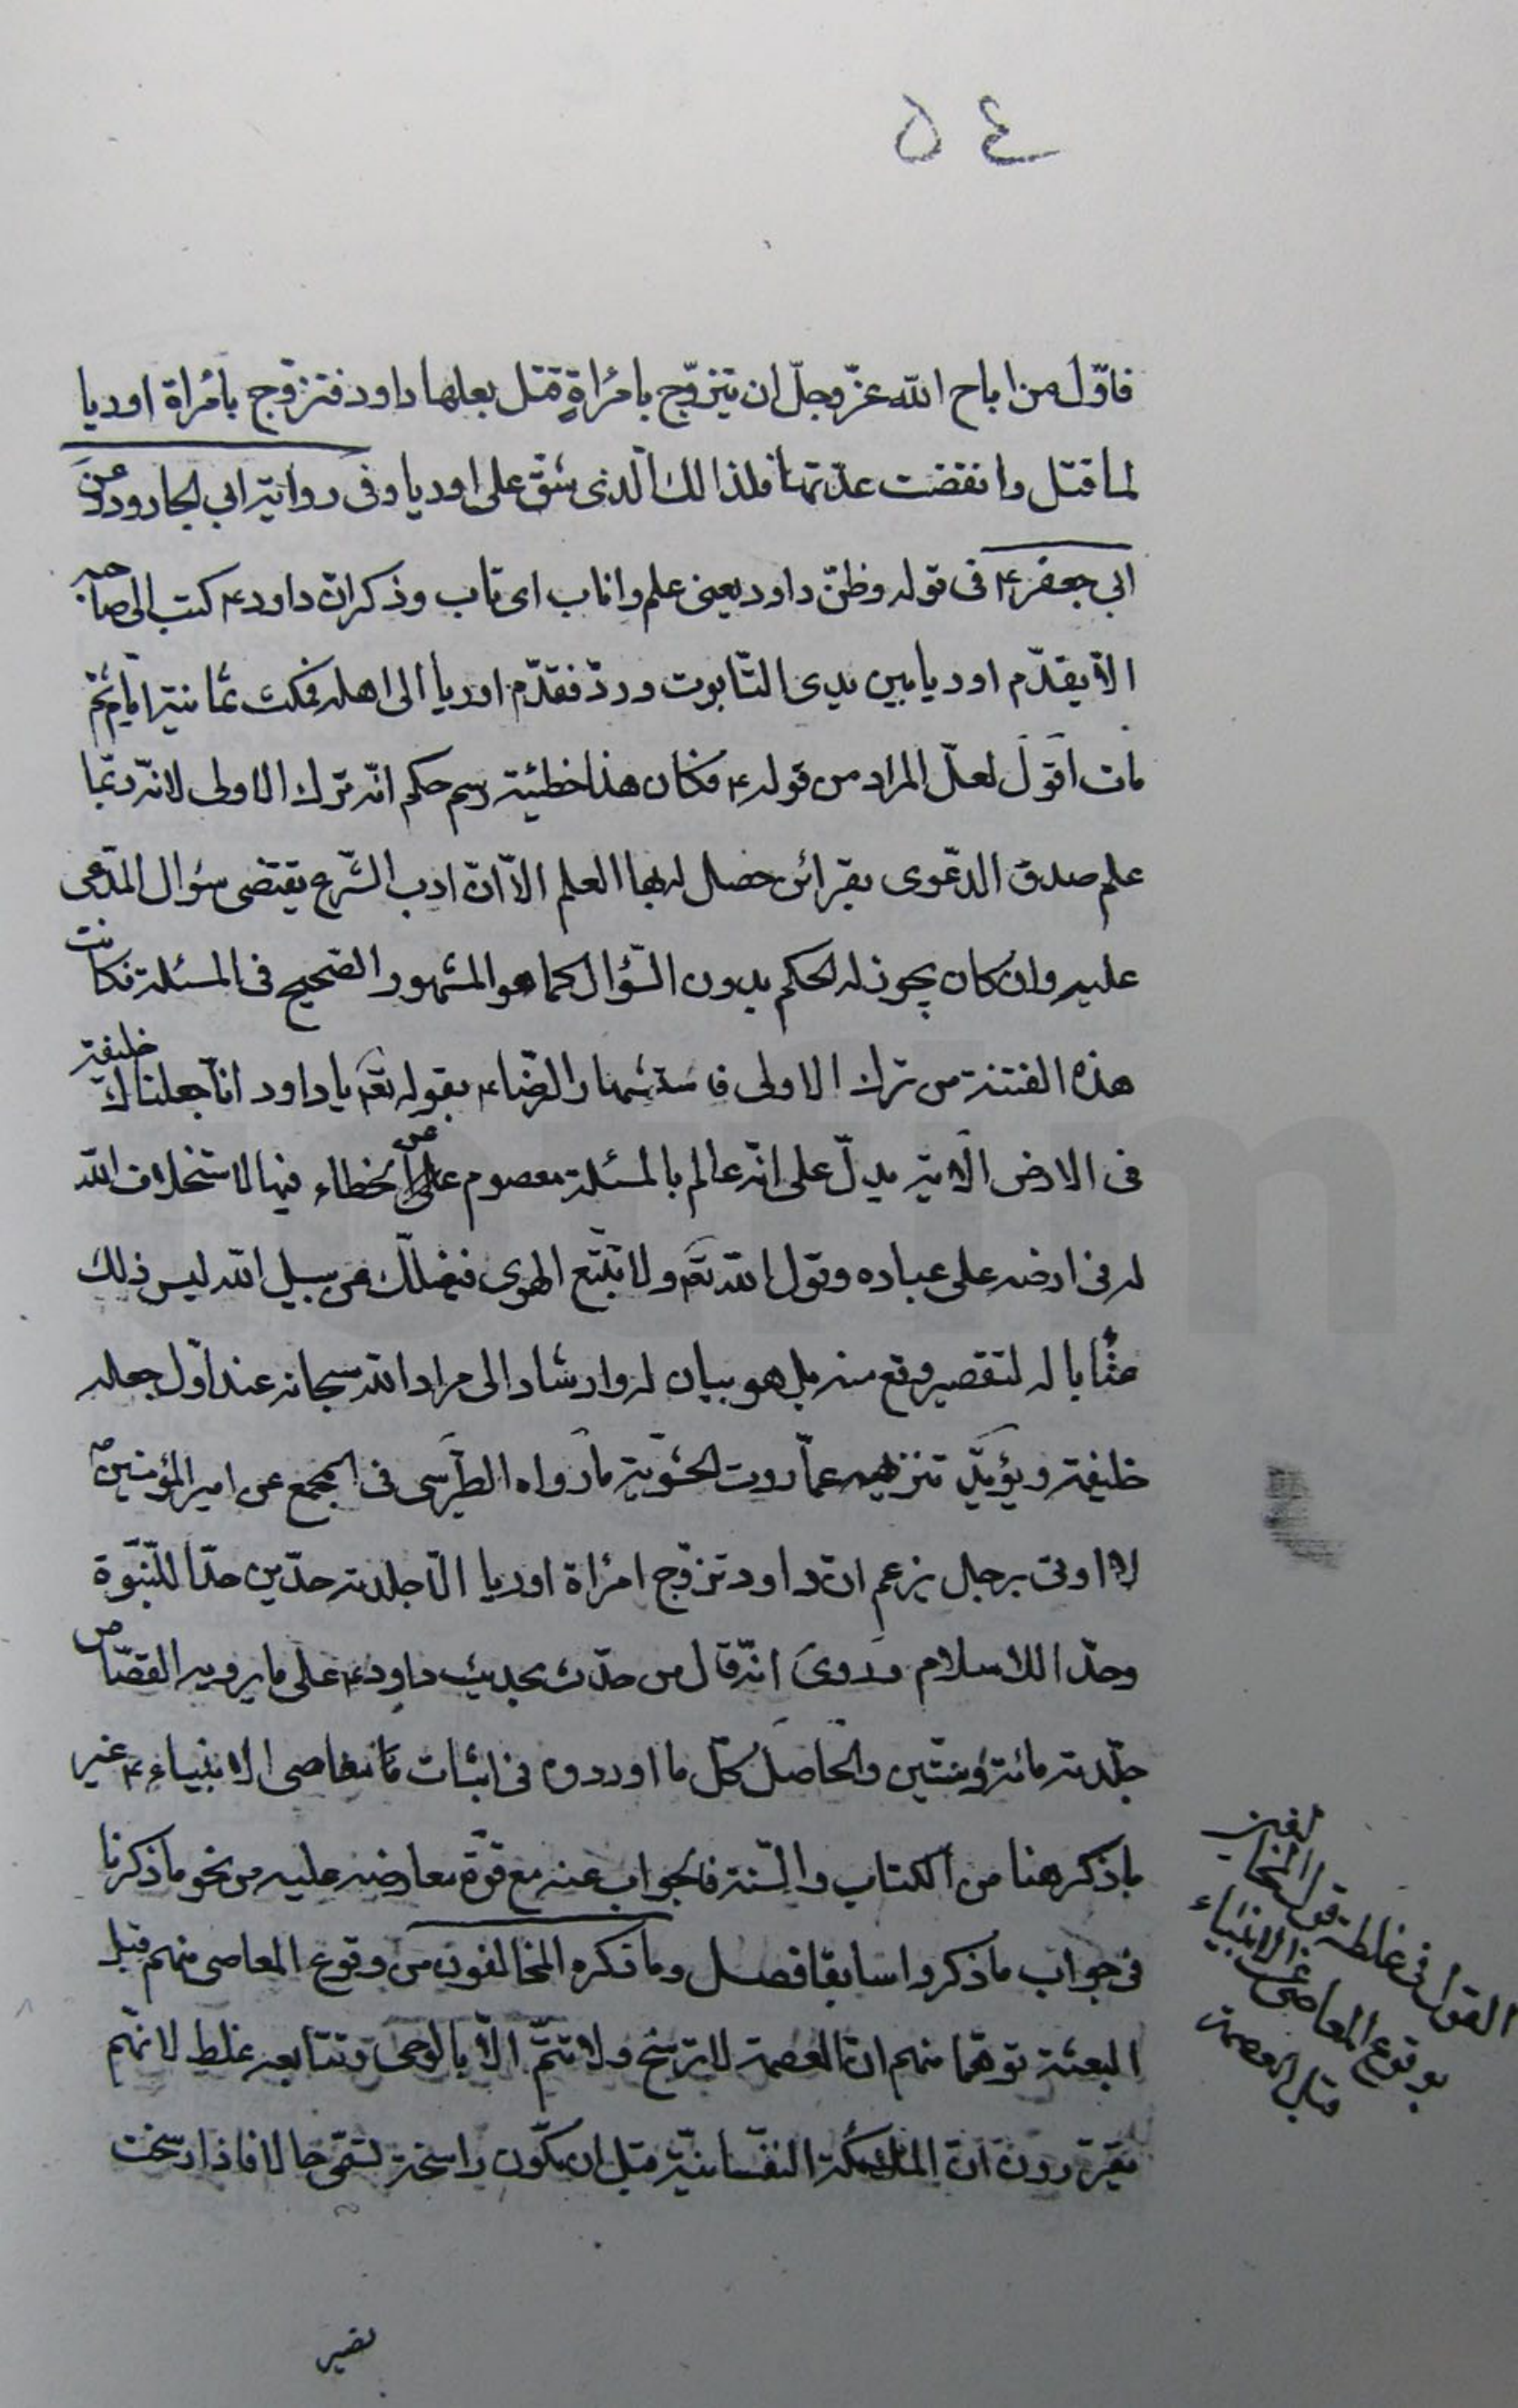 ٥٤
فاوّل من اباح الله عزّ وجلّ ان يتزوّج بامرأةٍ قتل بعلها داود فتزوّج بامرأة اوريا
لما قتل وانقضت عدّتها فلذالك الّذى شقّ على اوريا وفى رواية ابى الجارود عن
ابي جعفر ع فى قوله وظنّ داود يعنى علم واناب اى تاب وذكر انّ داود ع كتب الى صاحبه
الا يقدّم اوريا بين يدى التّابوت وردّ فقدّم اوريا الى اهله فمكث ثمانية ايّام ثمّ
مات اقول لعلّ المراد من قوله ع فكان هذا خطيئة رسم حكم انّه ترك الاولى لانّه ربّما
علم صدق الدّعوى بقرائن حصل له بها العلم الّا انّ ادب الشّرع يقتضى سؤال المدّعى
عليه وان كان يجوز له الحكم بدون السّؤال كما هو المشهور الصّحيح فى المسئلة فكانت
هذه الفتنة من ترك الاولى فاستشهار الرضا ع بقوله تعم يا داود انّا جعلناك خليفة
فى الارض الآية يدلّ على انّه عالم بالمسئلة معصوم عن الخطاء فيها لاستخلاف الله
له فى ارضه على عباده وقول الله تعم ولا تتّبع الهوى فيضلّك عن سبيل الله ليس ذلك
عتابا له لتقصير وقع منه بل هو بيان له وارشاد الى مراد الله سبحانه عند اوّل جعله
خليفة ويؤيّد تنزيهه عمّا روت الحشويّة ما رواه الطبرسى فى المجمع عن امير المؤمنين
لا اوتى برجل يزعم انّ داود تزوّج امرأة اوريا الّا جلدته حدّين حدّا للنّبوّة
وحدّا للاسلام وروى انّه قال من حدّث بحديث داود ع على ما يرويه القصّاص
جلّدته مائة وستّين والحاصل كلّ ما اوردوه فى اثبات معاصى الانبياء ع غير
ما ذكر هنا من الكتاب والسّنة فالجواب عنه مع قوّة معارضه عليه من نحو ما ذكرنا
فى جواب ما ذكروا سابقا فصل وما ذكره المخالفون من وقوع المعاصى منهم قبل
البعثة توهّما منهم انّ العصمة لا ترسخ ولا تتمّ الّا بالوحى وتتابعه غلط لانّهم
يقرّرون انّ الملكة النفسانيّة قبل ان تكون راسخة تسمّى حالا فاذا رسخت
القول فى غلطة قول المخالفين
بوقوع المعاصى عن الانبياء
قبل العصمة